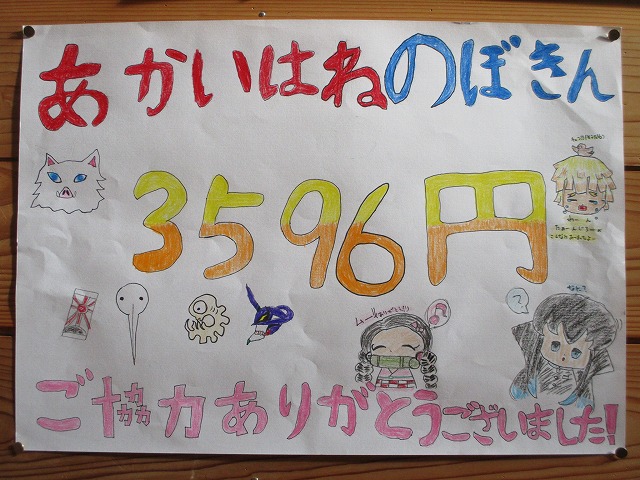 あかいはねのぼきん
3596円
?
ご協力ありがとうございました!